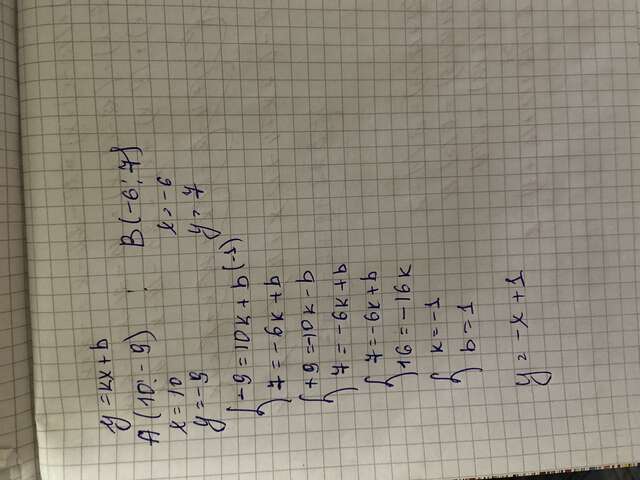 y = kx + b
A (10; -9) ; B (-6; 7)
x = 10 x = -6
y = -9 y = 7
{ -9 = 10k + b (-1)
7 = -6k + b
{ +9 = -10k - b
7 = -6k + b
{ 7 = -6k + b
16 = -16k
{ k = -1
b = 1
y = -x + 1